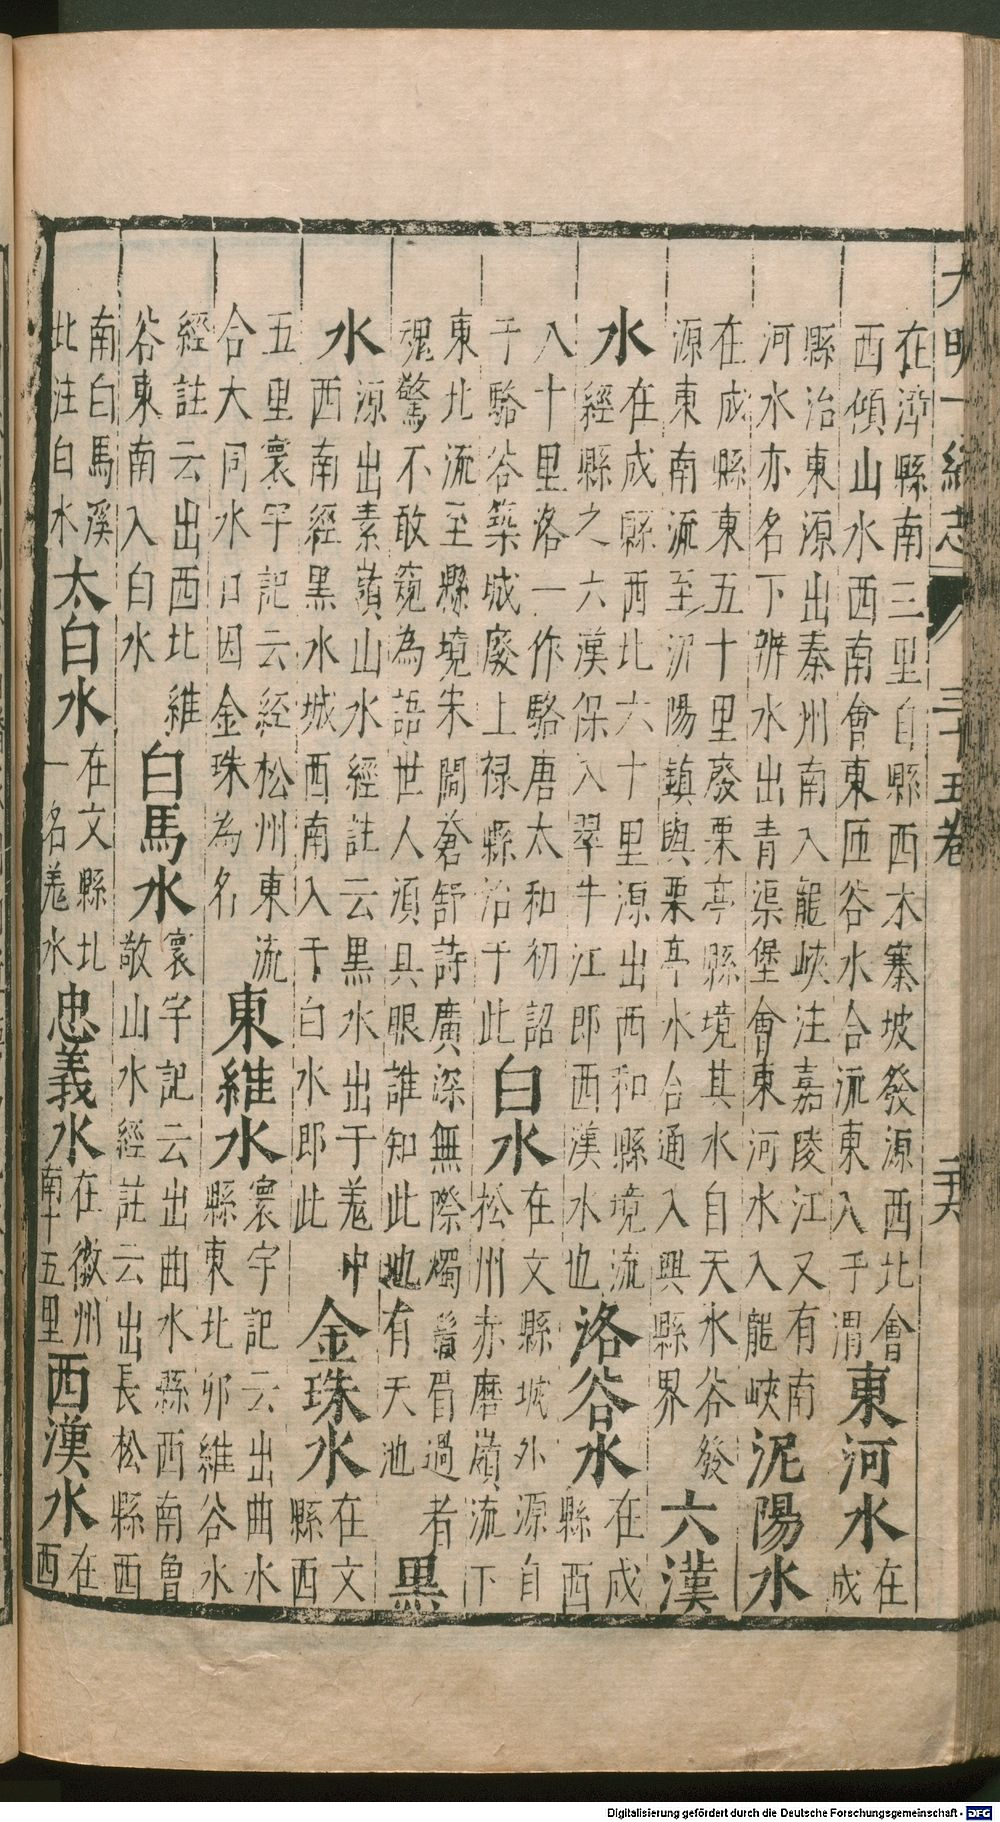 大明一統志 三十五卷 二十六
在漳縣南三里自縣西木寨坡發源西北會
西傾山水西南會東匝谷水合流東入于渭
東河水
在
成
縣治東源出秦州南入龍峽注嘉陵江又有南
河水亦名下辨水出青渠堡會東河水入龍峽
泥陽水
在成縣東五十里廢栗亭縣境其水自天水谷發
源東南流至泥陽鎮與栗亭水合通入興縣界
六漢
水
在成縣西北六十里源出西和縣境流
經縣之六漢保入翠牛江即西漢水也
洛谷水
在成
縣西
八十里洛一作駱唐太和初詔
于駱谷築城廢上祿縣治于此
白水
在文縣城外源自
松州赤磨嶺流下
東北流至縣境宋閻蒼舒詩廣深無際燭鬚眉過者
魂驚不敢窺為語世人須具眼誰知此地有天池
黑
水
源出素嶺山水經註云黑水出于羗中
西南經黑水城西南入于白水即此
金珠水
在文
縣西
五里寰宇記云經松州東流
合大同水口因金珠為名
東維水
寰宇記云出曲水
縣東北卯維谷水
經註云出西北維
谷東南入白水
白馬水
寰宇記云出曲水縣西南魯
敬山水經註云出長松縣西
南白馬溪
北注白水
太白水
在文縣北
一名羗水
忠義水
在徽州
南十五里
西漢水
在
西
Digitalisierung gefördert durch die Deutsche Forschungsgemeinschaft - DFG